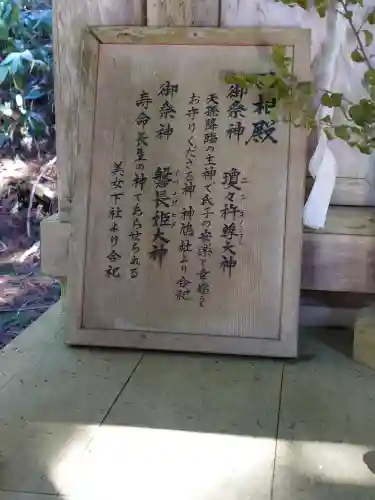 相殿
御祭神 瓊々杵尊大神
天孫降臨の主神で氏子の安泰と幸福を
お守りくださる神 神鳩社より合祀
御祭神 磐長姫大神
寿命長生の神であらせられる
美女下社より合祀